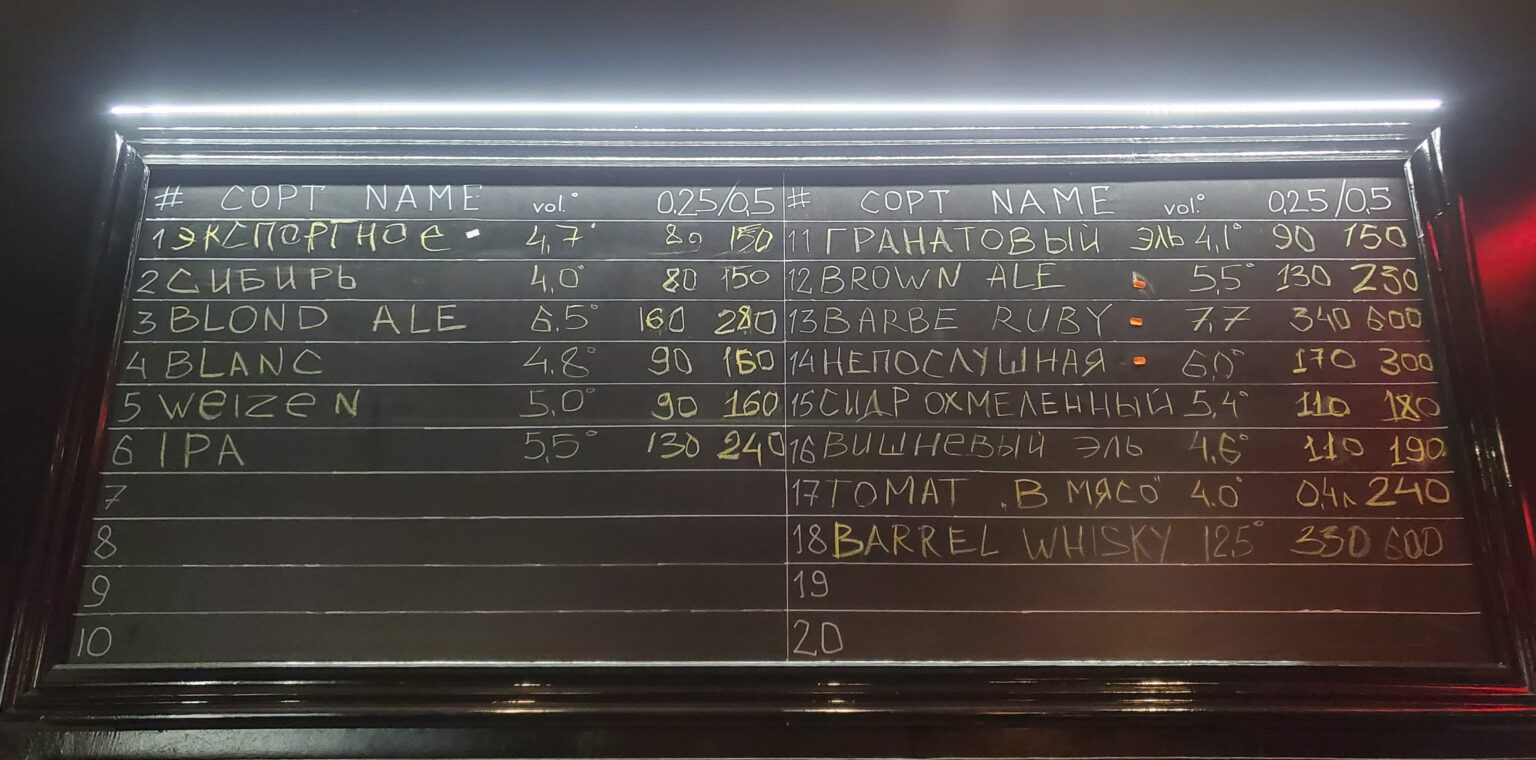 # СОРТ NAME vol.° 0,25/0,5
1 ЭКСПОРТНОЕ 4,7° 80 150
2 СИБИРЬ 4,0° 80 150
3 BLOND ALE 6.5° 160 280
4 BLANC 4.8° 90 160
5 WeizeN 5,0° 90 160
6 IPA 5,5° 130 240
7
8
9
10
# СОРТ NAME vol.° 0,25/0,5
11 ГРАНАТОВЫЙ ЭЛЬ 4,1° 90 150
12 BROWN ALE 5,5° 130 230
13 BARBE RUBY 7,7 340 600
14 НЕПОСЛУШНАЯ 6,0° 170 300
15 СИДР ОХМЕЛЕННЫЙ 5,4° 110 180
16 ВИШНЕВЫЙ ЭЛЬ 4,6° 110 190
17 ТОМАТ „В МЯСО" 4.0° 0,4л 240
18 BARREL WHISKY 12,5° 330 600
19
20